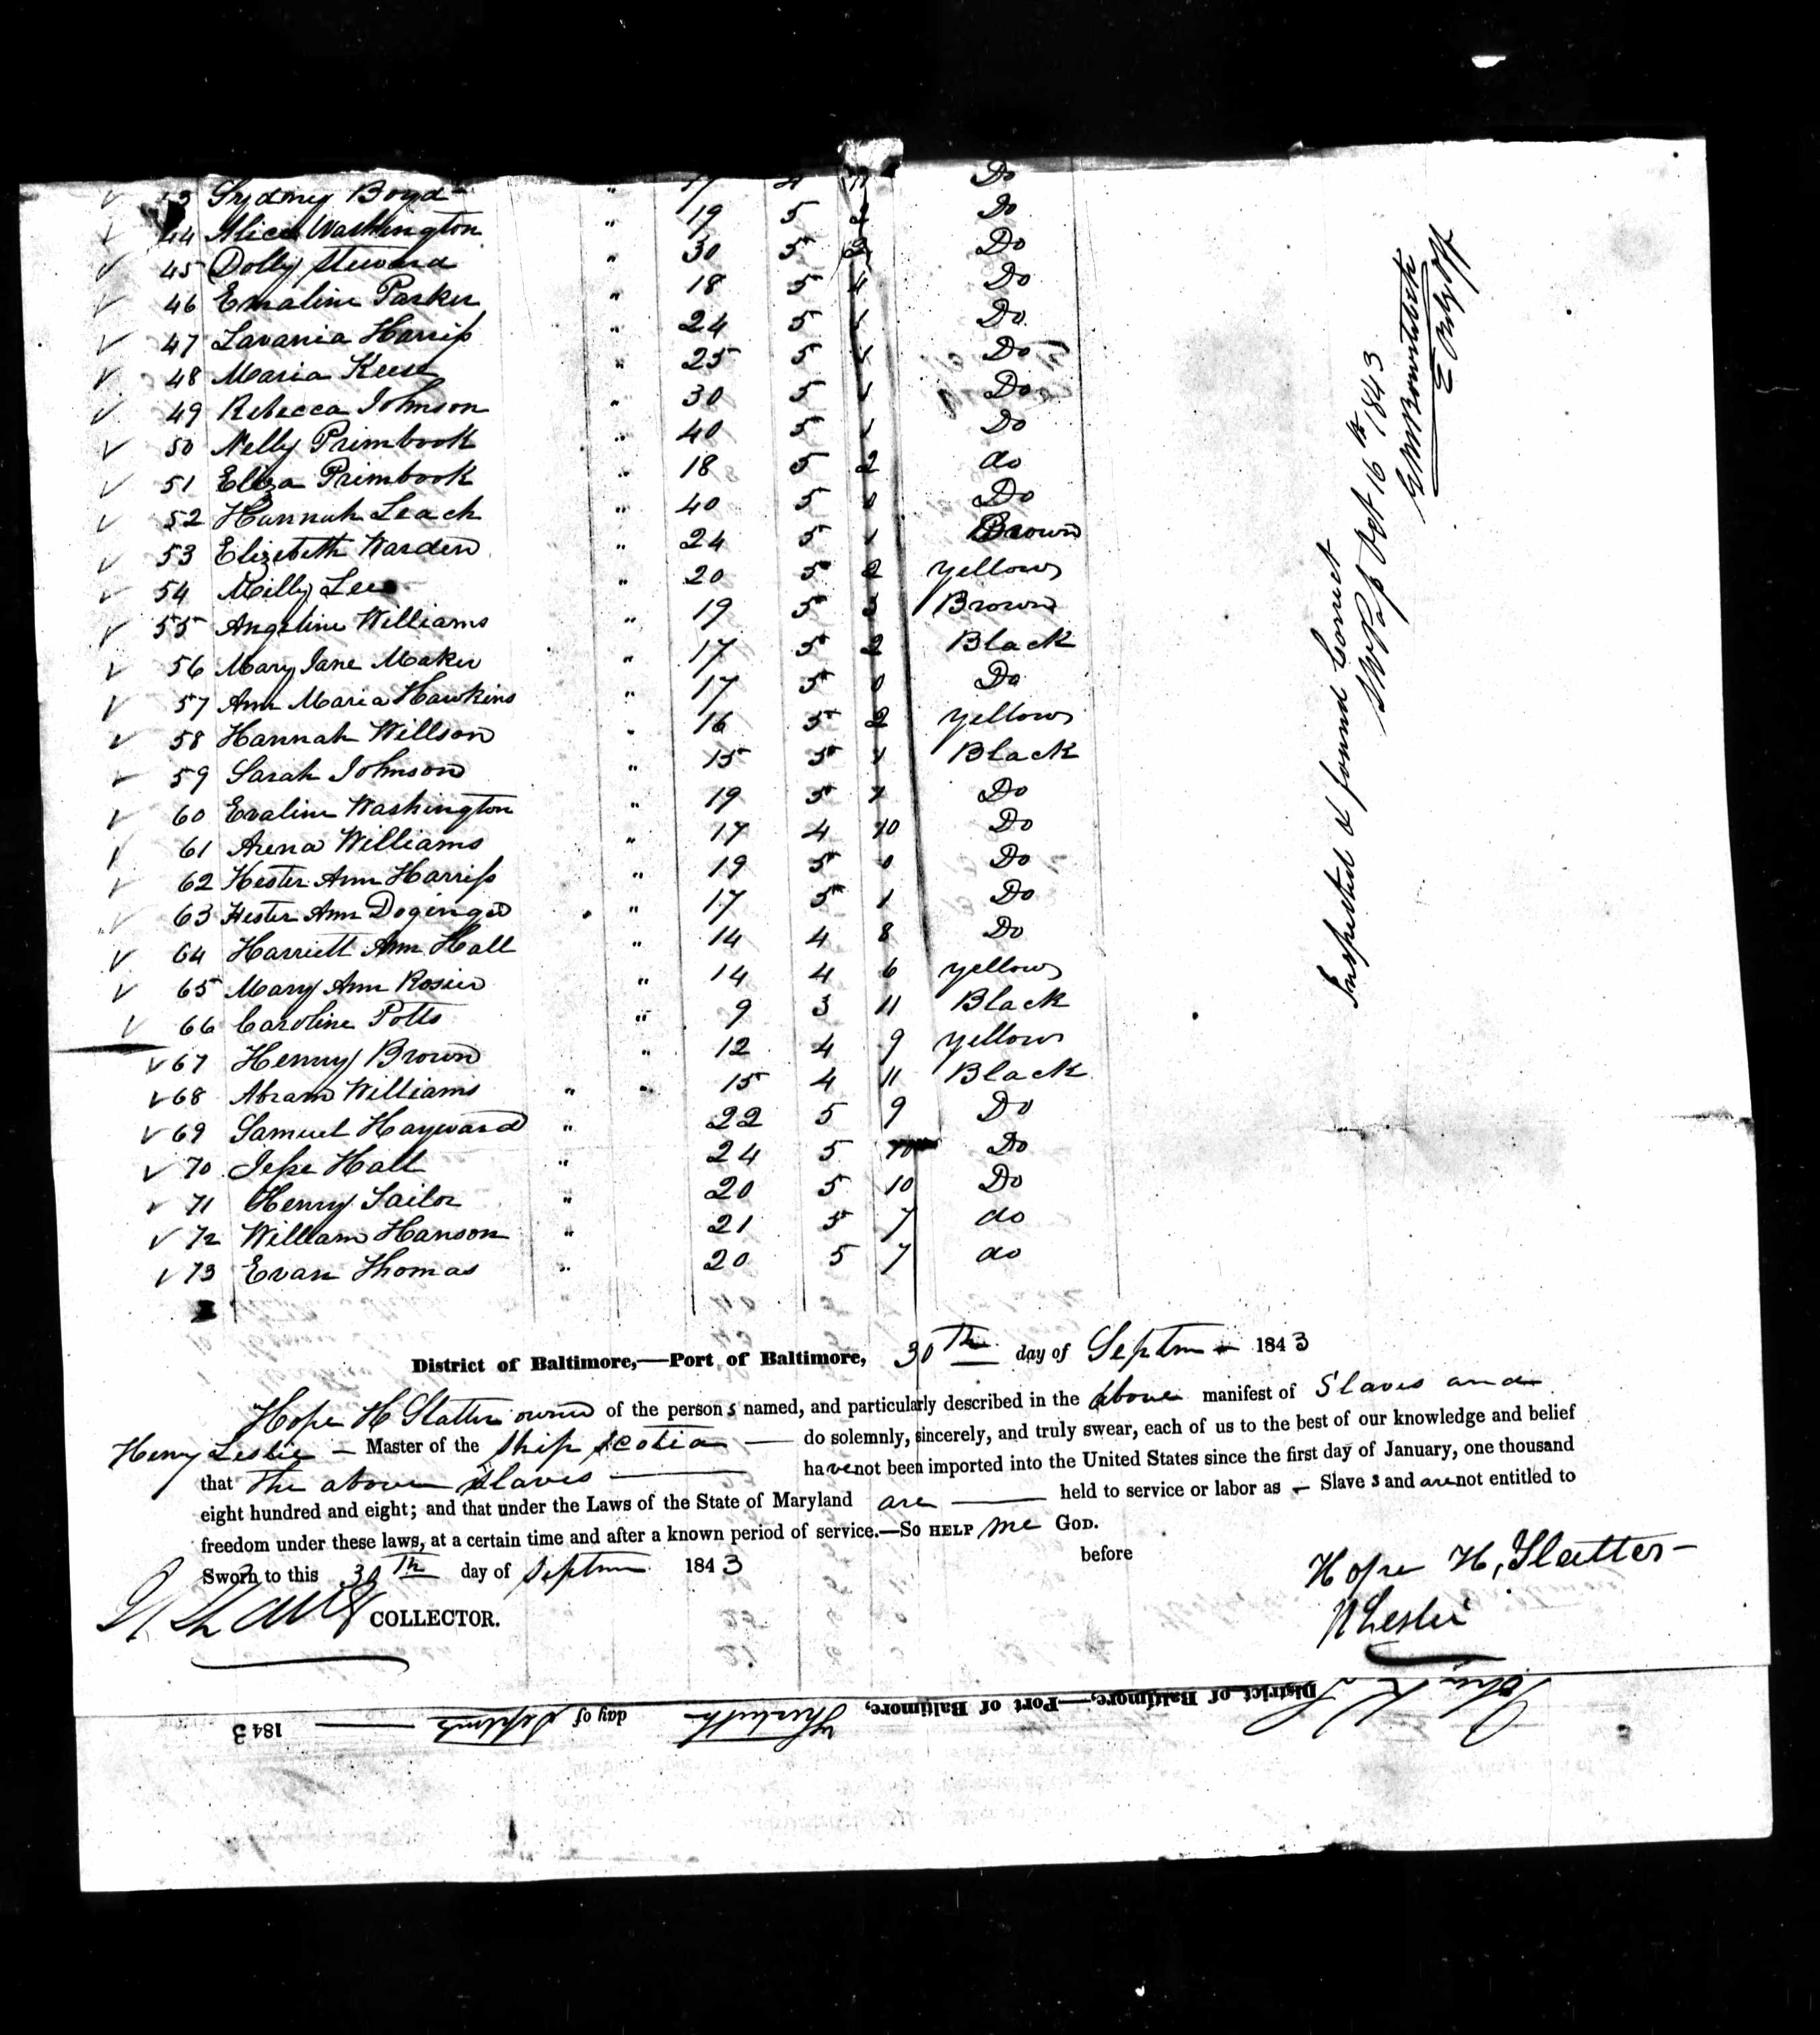 Sydney Boyd " Do
44 Alice Washington " 19 5 2 Do
45 Dolly Steward " 30 5 Do
46 Emaline Parker " 18 5 4 Do
47 Lavania Harriss " 24 5 1 Do
48 Maria Keese " 25 5 1 Do
49 Rebecca Johnson " 30 5 1 Do
50 Nelly Primbrook " 40 5 1 Do
51 Eliza Primbook " 18 5 2 do
52 Hannah Leach " 40 5 0 Do
53 Elizebeth Warden " 24 5 1 Brown
54 Milly Lee " 20 5 2 yellow
55 Angeline Williams " 19 5 3 Brown
56 Mary Jane Maker " 17 5 2 Black
57 Ann Maria Hawkins " 17 5 0 Do
58 Hannah Willson " 16 5 2 yellow
59 Sarah Johnson " 15 5 1 Black
60 Evaline Washington " 19 5 1 Do
61 Arena Williams " 17 4 10 Do
62 Hester Ann Harriss " 19 5 0 Do
63 Hester Ann " 17 5 1 Do
64 Harriett Ann Hall " 14 4 8 Do
65 Mary Ann Rosier " 14 4 6 yellow
66 Caroline Potts " 9 3 11 Black
67 Henny Brown " 12 4 9 yellow
68 Abram Williams " " 15 4 11 Black
69 Samuel Hayward " 22 5 9 Do
70 Jesse Hall " 24 5 10 Do
71 Henry Tailor " 20 5 10 Do
72 William Hanson " 21 5 7 do
73 Evan Thomas " 20 5 7 do
Inspected & found Correct
Oct 16th 1843
District of Baltimore,—Port of Baltimore, 30Th day of Septm 1843
Hope H Slatter owner of the persons named, and particularly described in the above manifest of Slaves and
Henry Leslie — Master of the Ship Scotia — do solemnly, sincerely, and truly swear, each of us to the best of our knowledge and belief
that The above Slaves — have not been imported into the United States since the first day of January, one thousand
eight hundred and eight; and that under the Laws of the State of Maryland are — held to service or labor as — Slaves and are not entitled to
freedom under these laws, at a certain time and after a known period of service.—So HELP me GOD.
Sworn to this 30Th day of Septm 1843 before
Hope H, Slatter
H Leslie
COLLECTOR.
District of Baltimore,—Port of Baltimore, Thirtieth day of Septemb — 1843